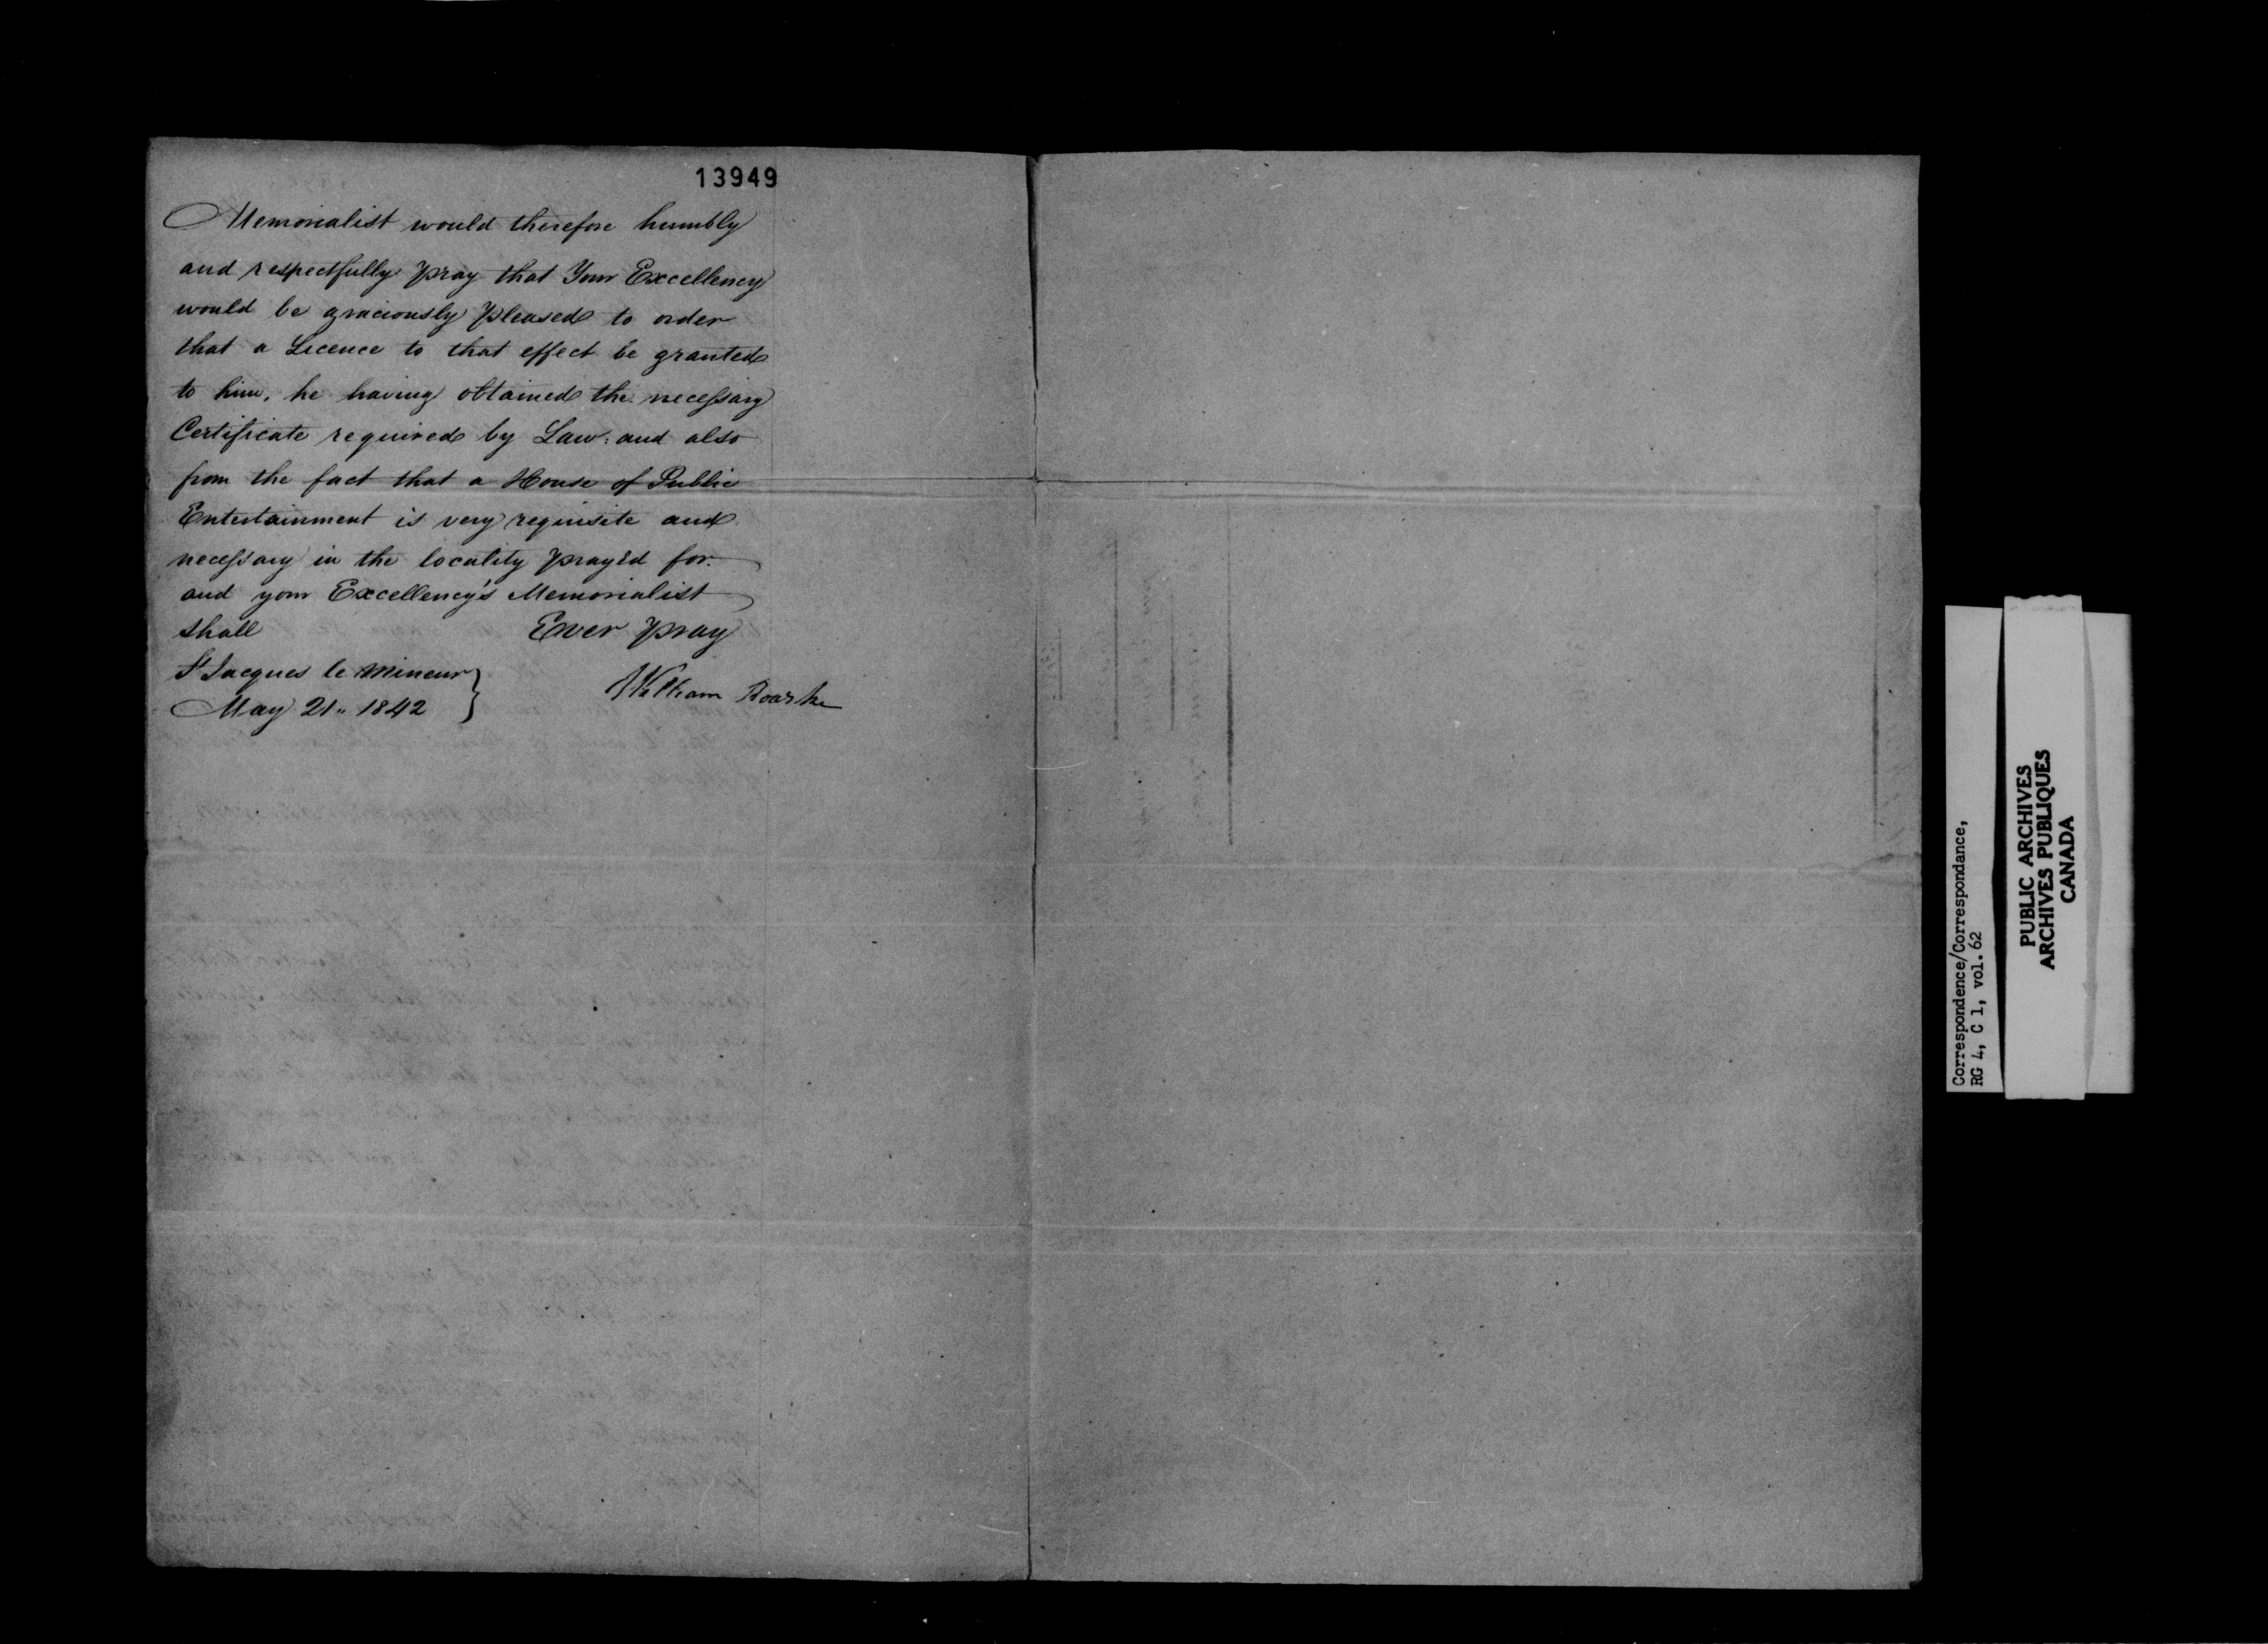 13949
Memorialist would therefore humbly
and respectfully pray that Your Excellency
would be graciously pleased to order
that a Licence to that effect be granted
to him, he having obtained the necessary
Certificate required by Law: and also
from the fact that a House of Public
Entertainment is very requisite and
necessary in the locality pray'd for.
and your Excellency's Memorialist
shall Ever pray
St Jacques le Mineur
May 21" 1842
William Roarke
Correspondence/Correspondance,
RG 4, C 1, vol. 62
PUBLIC ARCHIVES
ARCHIVES PUBLIQUES
CANADA